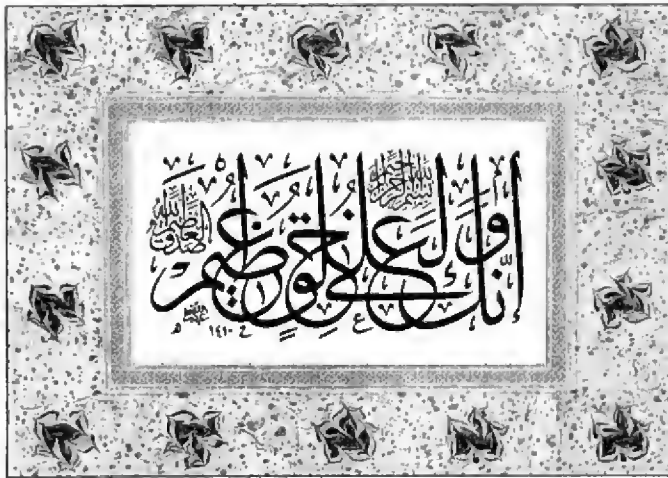 بسم الله الرحمن الرحيم
وَإنّكَ لَعَلى خُلُقٍ عَظيمٍ
صدق الله العظيم
١٤١٠ هـ